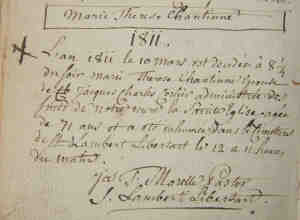 Marie Therese Chantinne
1811.
L'an 1811 le 10 mars est decedée à 8 ¼
du soir marie Therese Chantinne Epouse
de Jacques Charles administrée de
notre mere la Sainte Eglise agée
de 71 ans et a ete inhumée dans le cimetiere
de St Lambert Libersart le 12 a 11 heures
du matin.
Morelle Pastor
S. Lambert Libersart